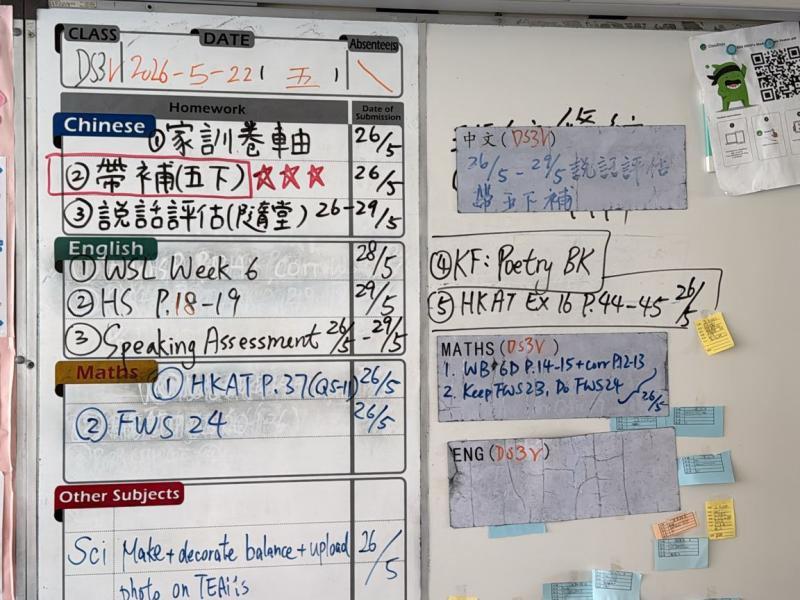 CLASS DATE Absentees
DS3V 2026-5-22 ( 五 ) \
Homework Date of Submission
Chinese
① 家訓卷軸 26/5
② 帶補(五下) ☆☆☆ 26/5
③ 說話評估(隨堂) 26-29/5
English
① WSL Week 6 28/5
② HS P.18-19 29/5
③ Speaking Assessment 26/5-29/5
④ KF: Poetry BK
⑤ HKAT EX 16 P.44-45 26/5
Maths
① HKAT P.37(Q5-11) 26/5
② FWS 24 26/5
Other Subjects
Sci Make+decorate balance+upload 26/5
photo on TEAi's
中文(DS3V)
26/5-29/5 說話評估
帶五下補
MATHS(DS3V)
1. WB 6D P.14-15+corr P.12-13
2. Keep FWS 23, Do FWS 24
26/5
ENG(DS3V)